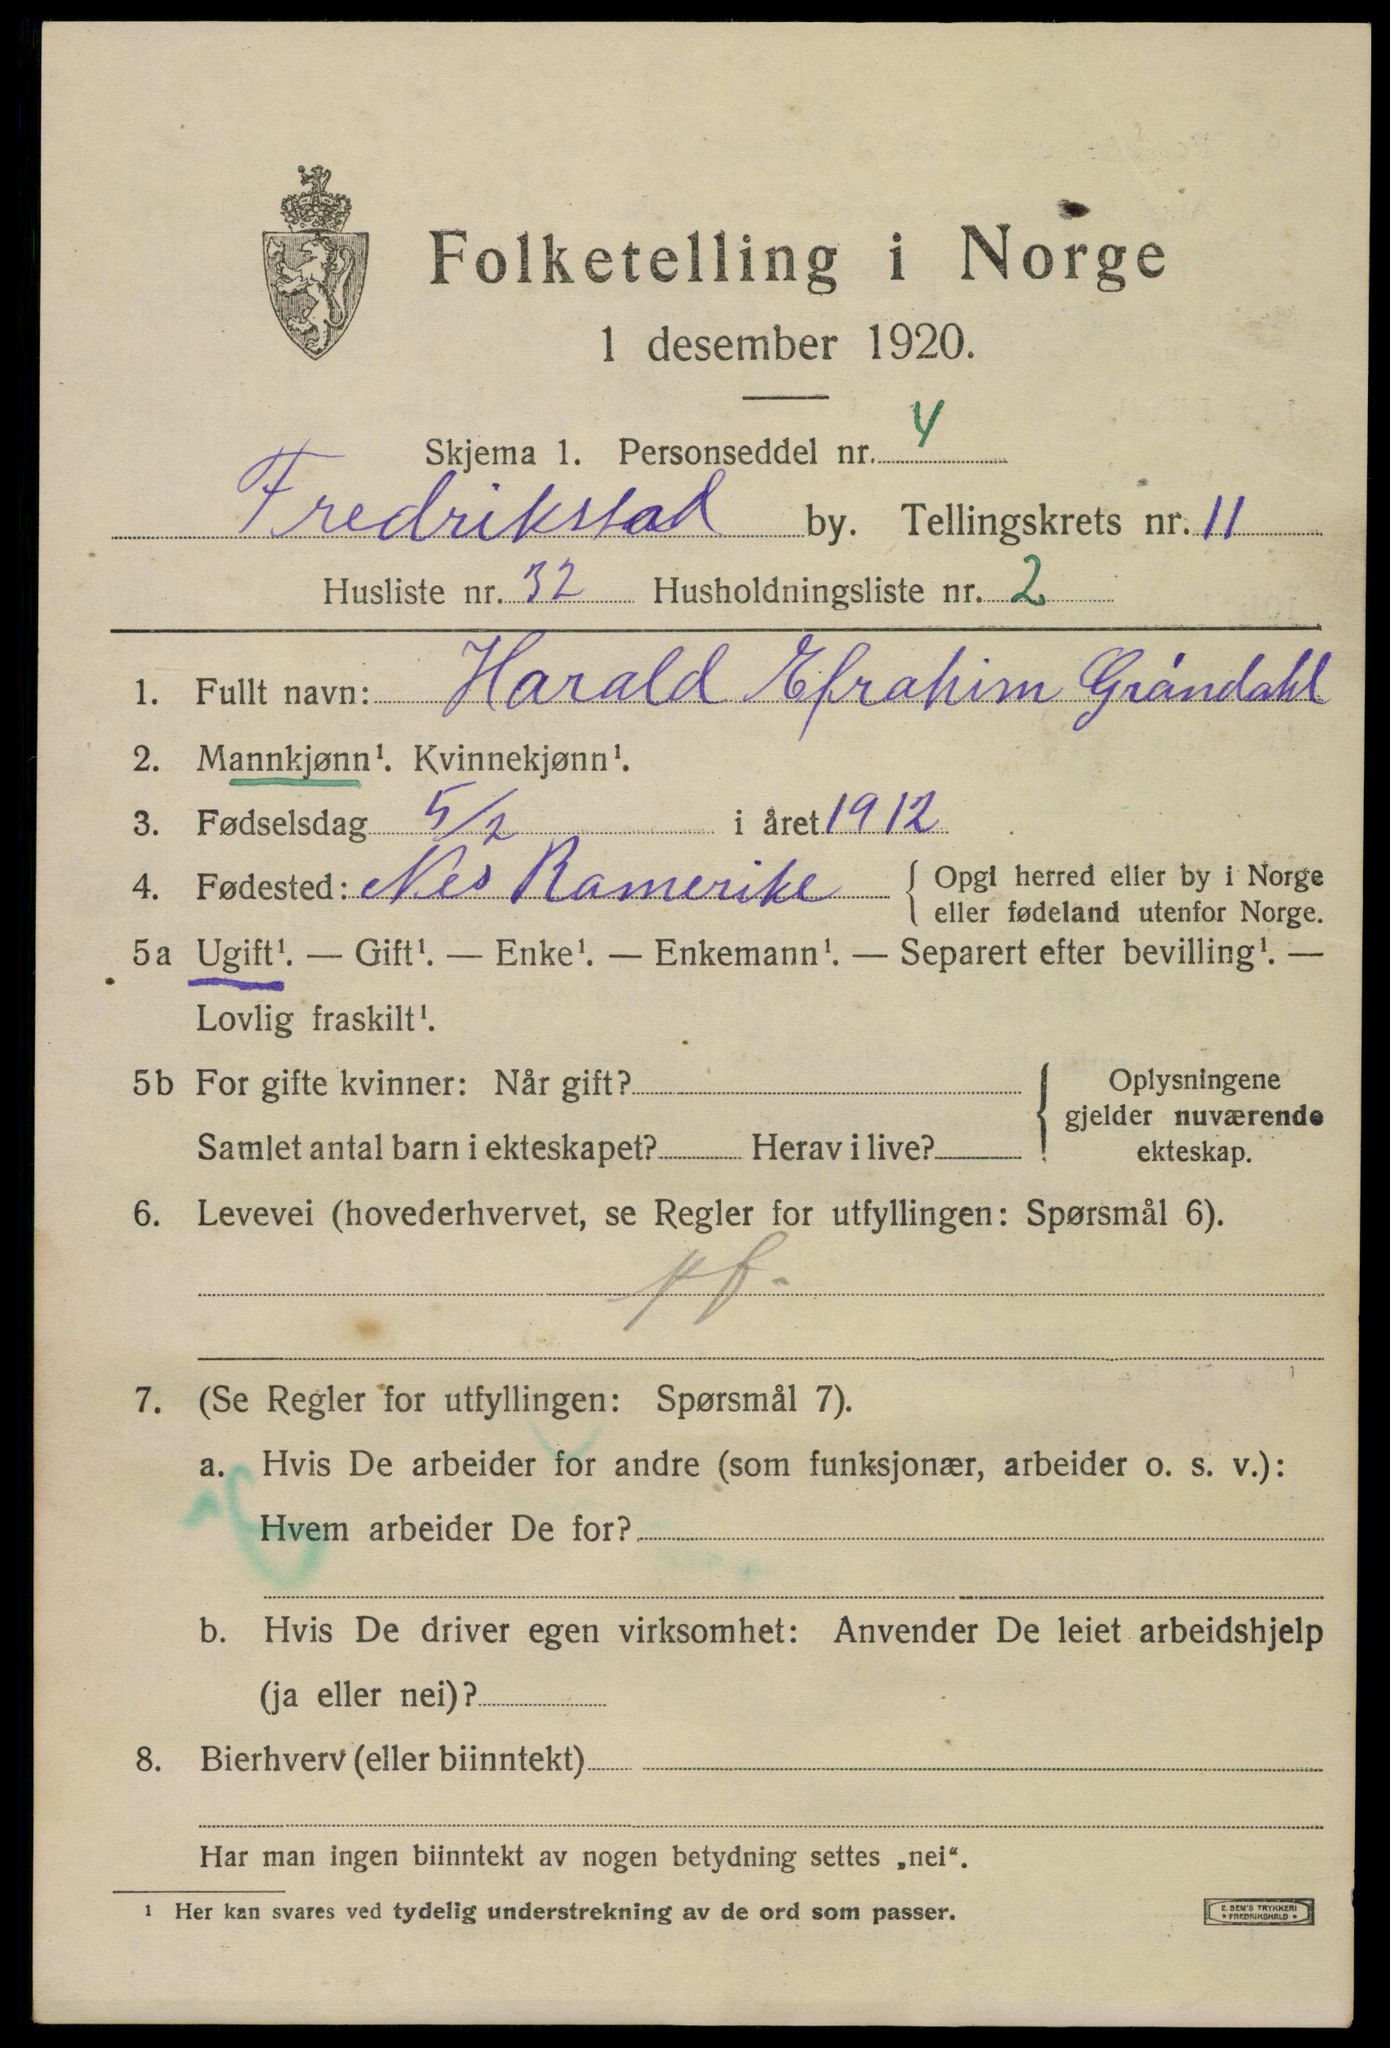 Folketelling i Norge
1 desember 1920.
Skjema 1. Personseddel nr. 4
Fredrikstad by. Tellingskrets nr. 11
Husliste nr. 32 Husholdningsliste nr. 2
1. Fullt navn: Harald Efrahim Gróndahl
2. Mannkjønn¹. Kvinnekjønn¹.
3. Fødselsdag 5/2 i året 1912
4. Fødested: Nes Ramerike { Opgi herred eller by i Norge
eller fødeland utenfor Norge.
5a Ugift¹. — Gift¹. — Enke¹. — Enkemann¹. — Separert efter bevilling¹. —
Lovlig fraskilt¹.
5b For gifte kvinner: Når gift? Oplysningene
gjelder nuværende
Samlet antal barn i ekteskapet? Herav i live? ekteskap.
6. Levevei (hovederhvervet, se Regler for utfyllingen: Spørsmål 6).
7. (Se Regler for utfyllingen: Spørsmål 7).
a. Hvis De arbeider for andre (som funksjonær, arbeider o. s. v.):
Hvem arbeider De for?
b. Hvis De driver egen virksomhet: Anvender De leiet arbeidshjelp
(ja eller nei)?
8. Bierhverv (eller biinntekt)
Har man ingen biinntekt av nogen betydning settes „nei“.
¹ Her kan svares ved tydelig understrekning av de ord som passer.
E. SEM'S TRYKKERI
* FREDRIKSHALD *